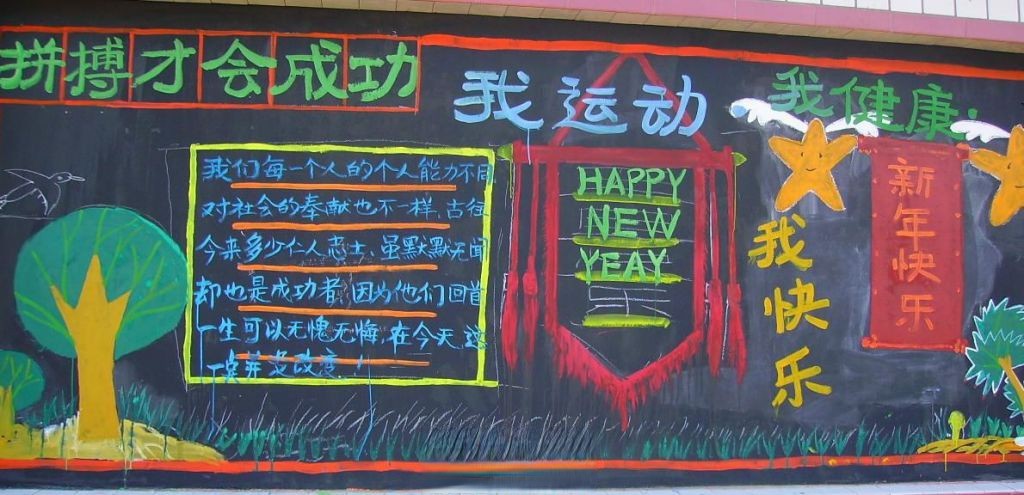 拼搏才会成功
我们每一个人的个人能力不同
对社会的奉献也不一样,古往
今来多少仁人志士,虽默默无闻
却也是成功者,因为他们回首
一生可以无愧无悔,在今天这
一点并没改变!
我运动
HAPPY
NEW
YEAY
我健康:
我快乐
新年快乐